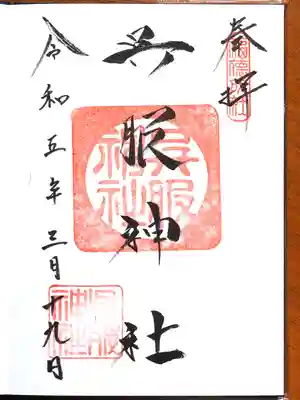 奉拝
呉服神社
令和五年三月十九日
呉服神社